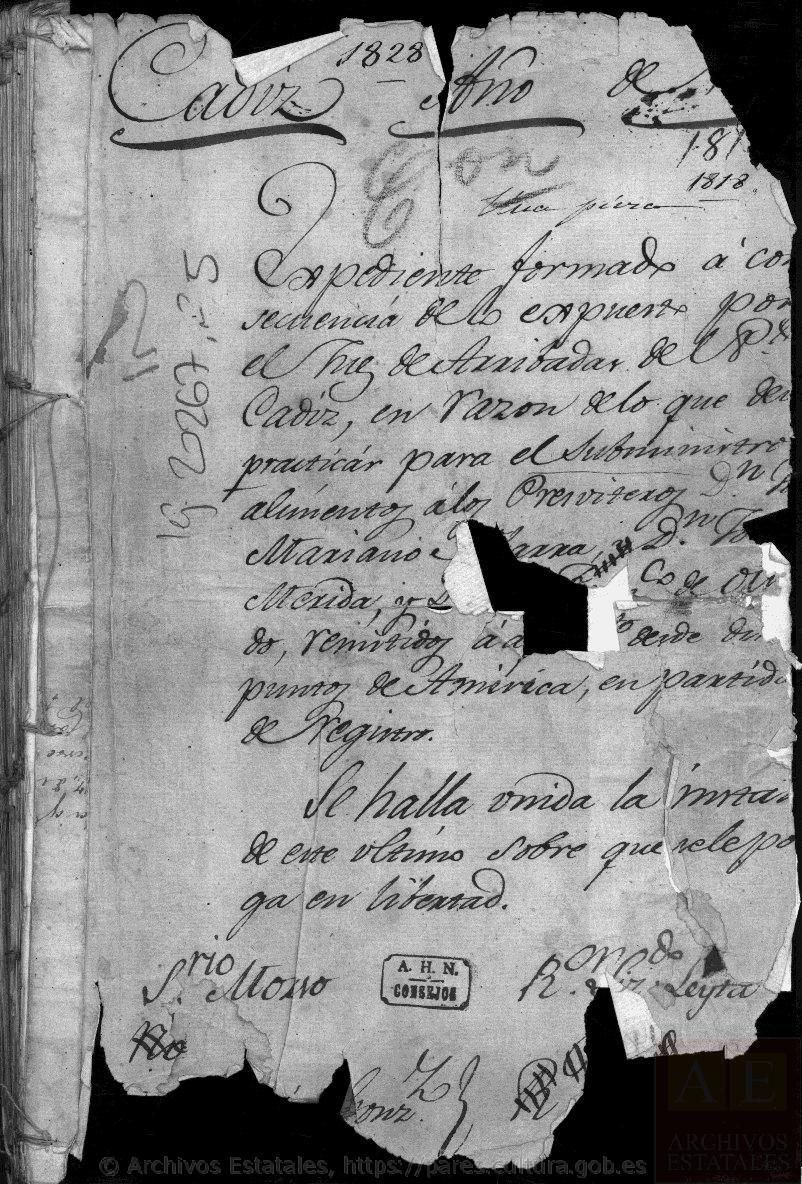 1828
Cadiz Año de
181
1818.
Con
Una pieza
Expediente formado á con
secuencia de lo expuesto por
el Juez de Arribadas de
Cadiz, en razon de lo que de
practicár para el Subministro
alimentos á los Presviteros Dn
Mariano D.n
Merida, y co de
do, remitidos á desde di
puntos de América, en partida
de registro.
Se halla unida la instan
de este ultimo sobre que se le po
ga en libertad.
S.rio Morso
R.or Ldo Leyta
No
A. H. N.
CONSEJOS
Gonz.z
lg. 20267, n 5
© Archivos Estatales, https://pares.cultura.gob.es
AE
ARCHIVOS
ESTATALES